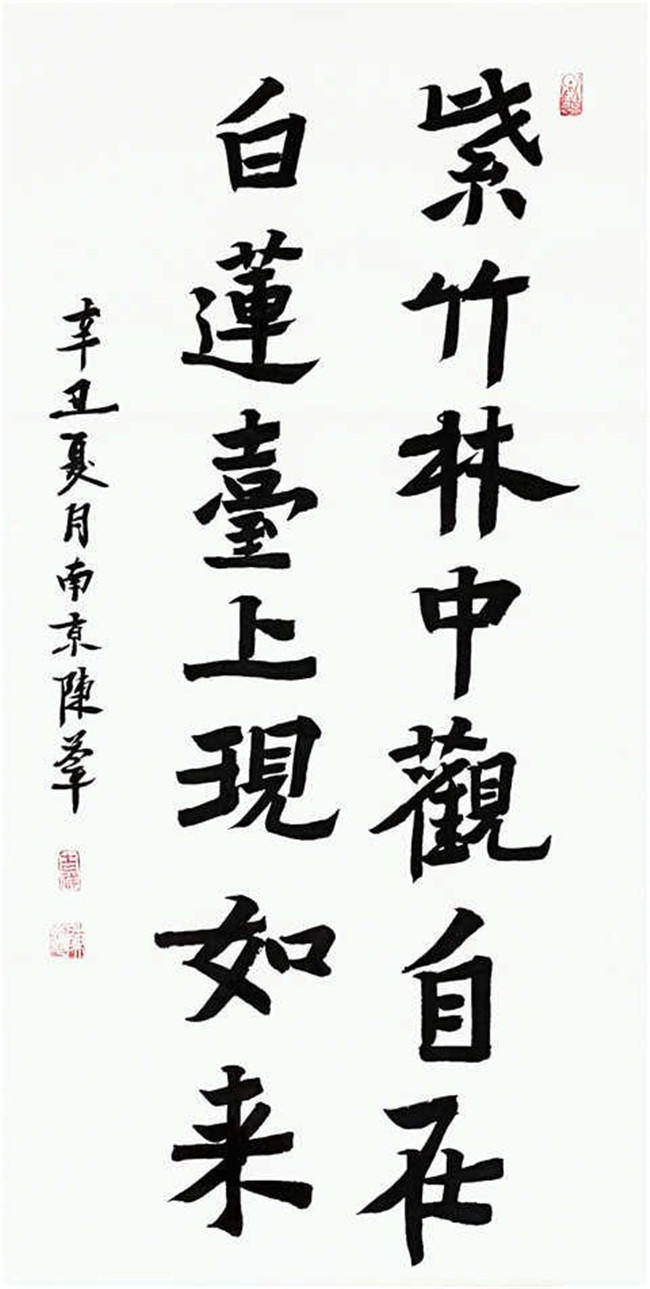 紫竹林中觀自在
白蓮臺上現如来
辛丑夏月南京陳